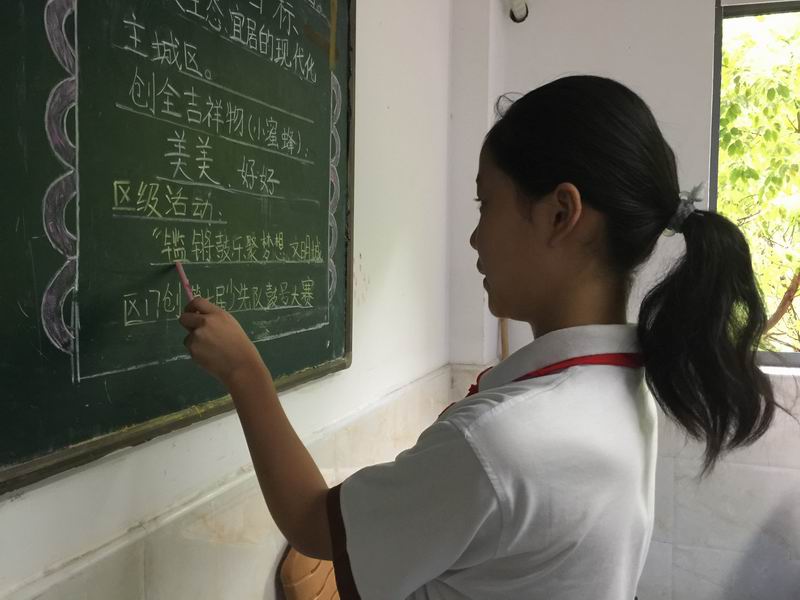 目标
生态宜居的现代化
主城区。
创全吉祥物(小蜜蜂):
美美、好好
区级活动:
"铿锵鼓乐聚梦想 文明城
区门 少先队鼓号大赛